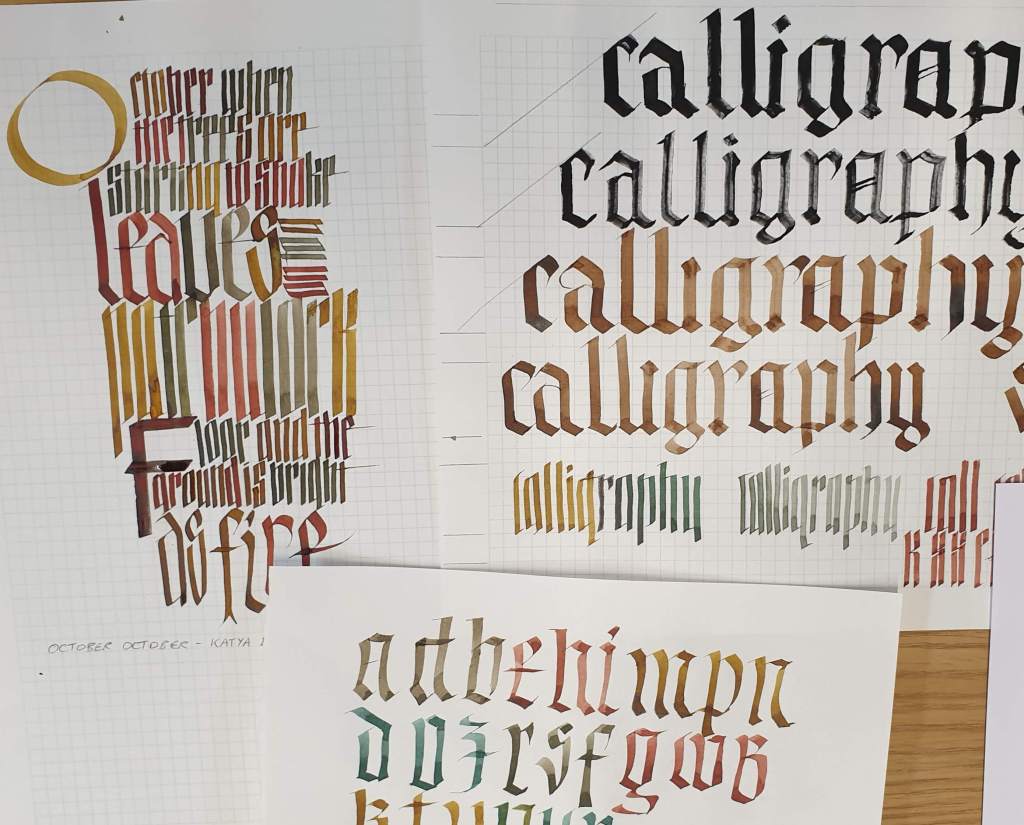 October when
the trees are
starting to shake
leaves
Floor and the
ground is bright
as fire
OCTOBER OCTOBER - KATYA
calligrap
calligraphy
calligraphy
calligraphy
calligraphy calligraphy call
a d b e h i m p n
d v z r s f g w b